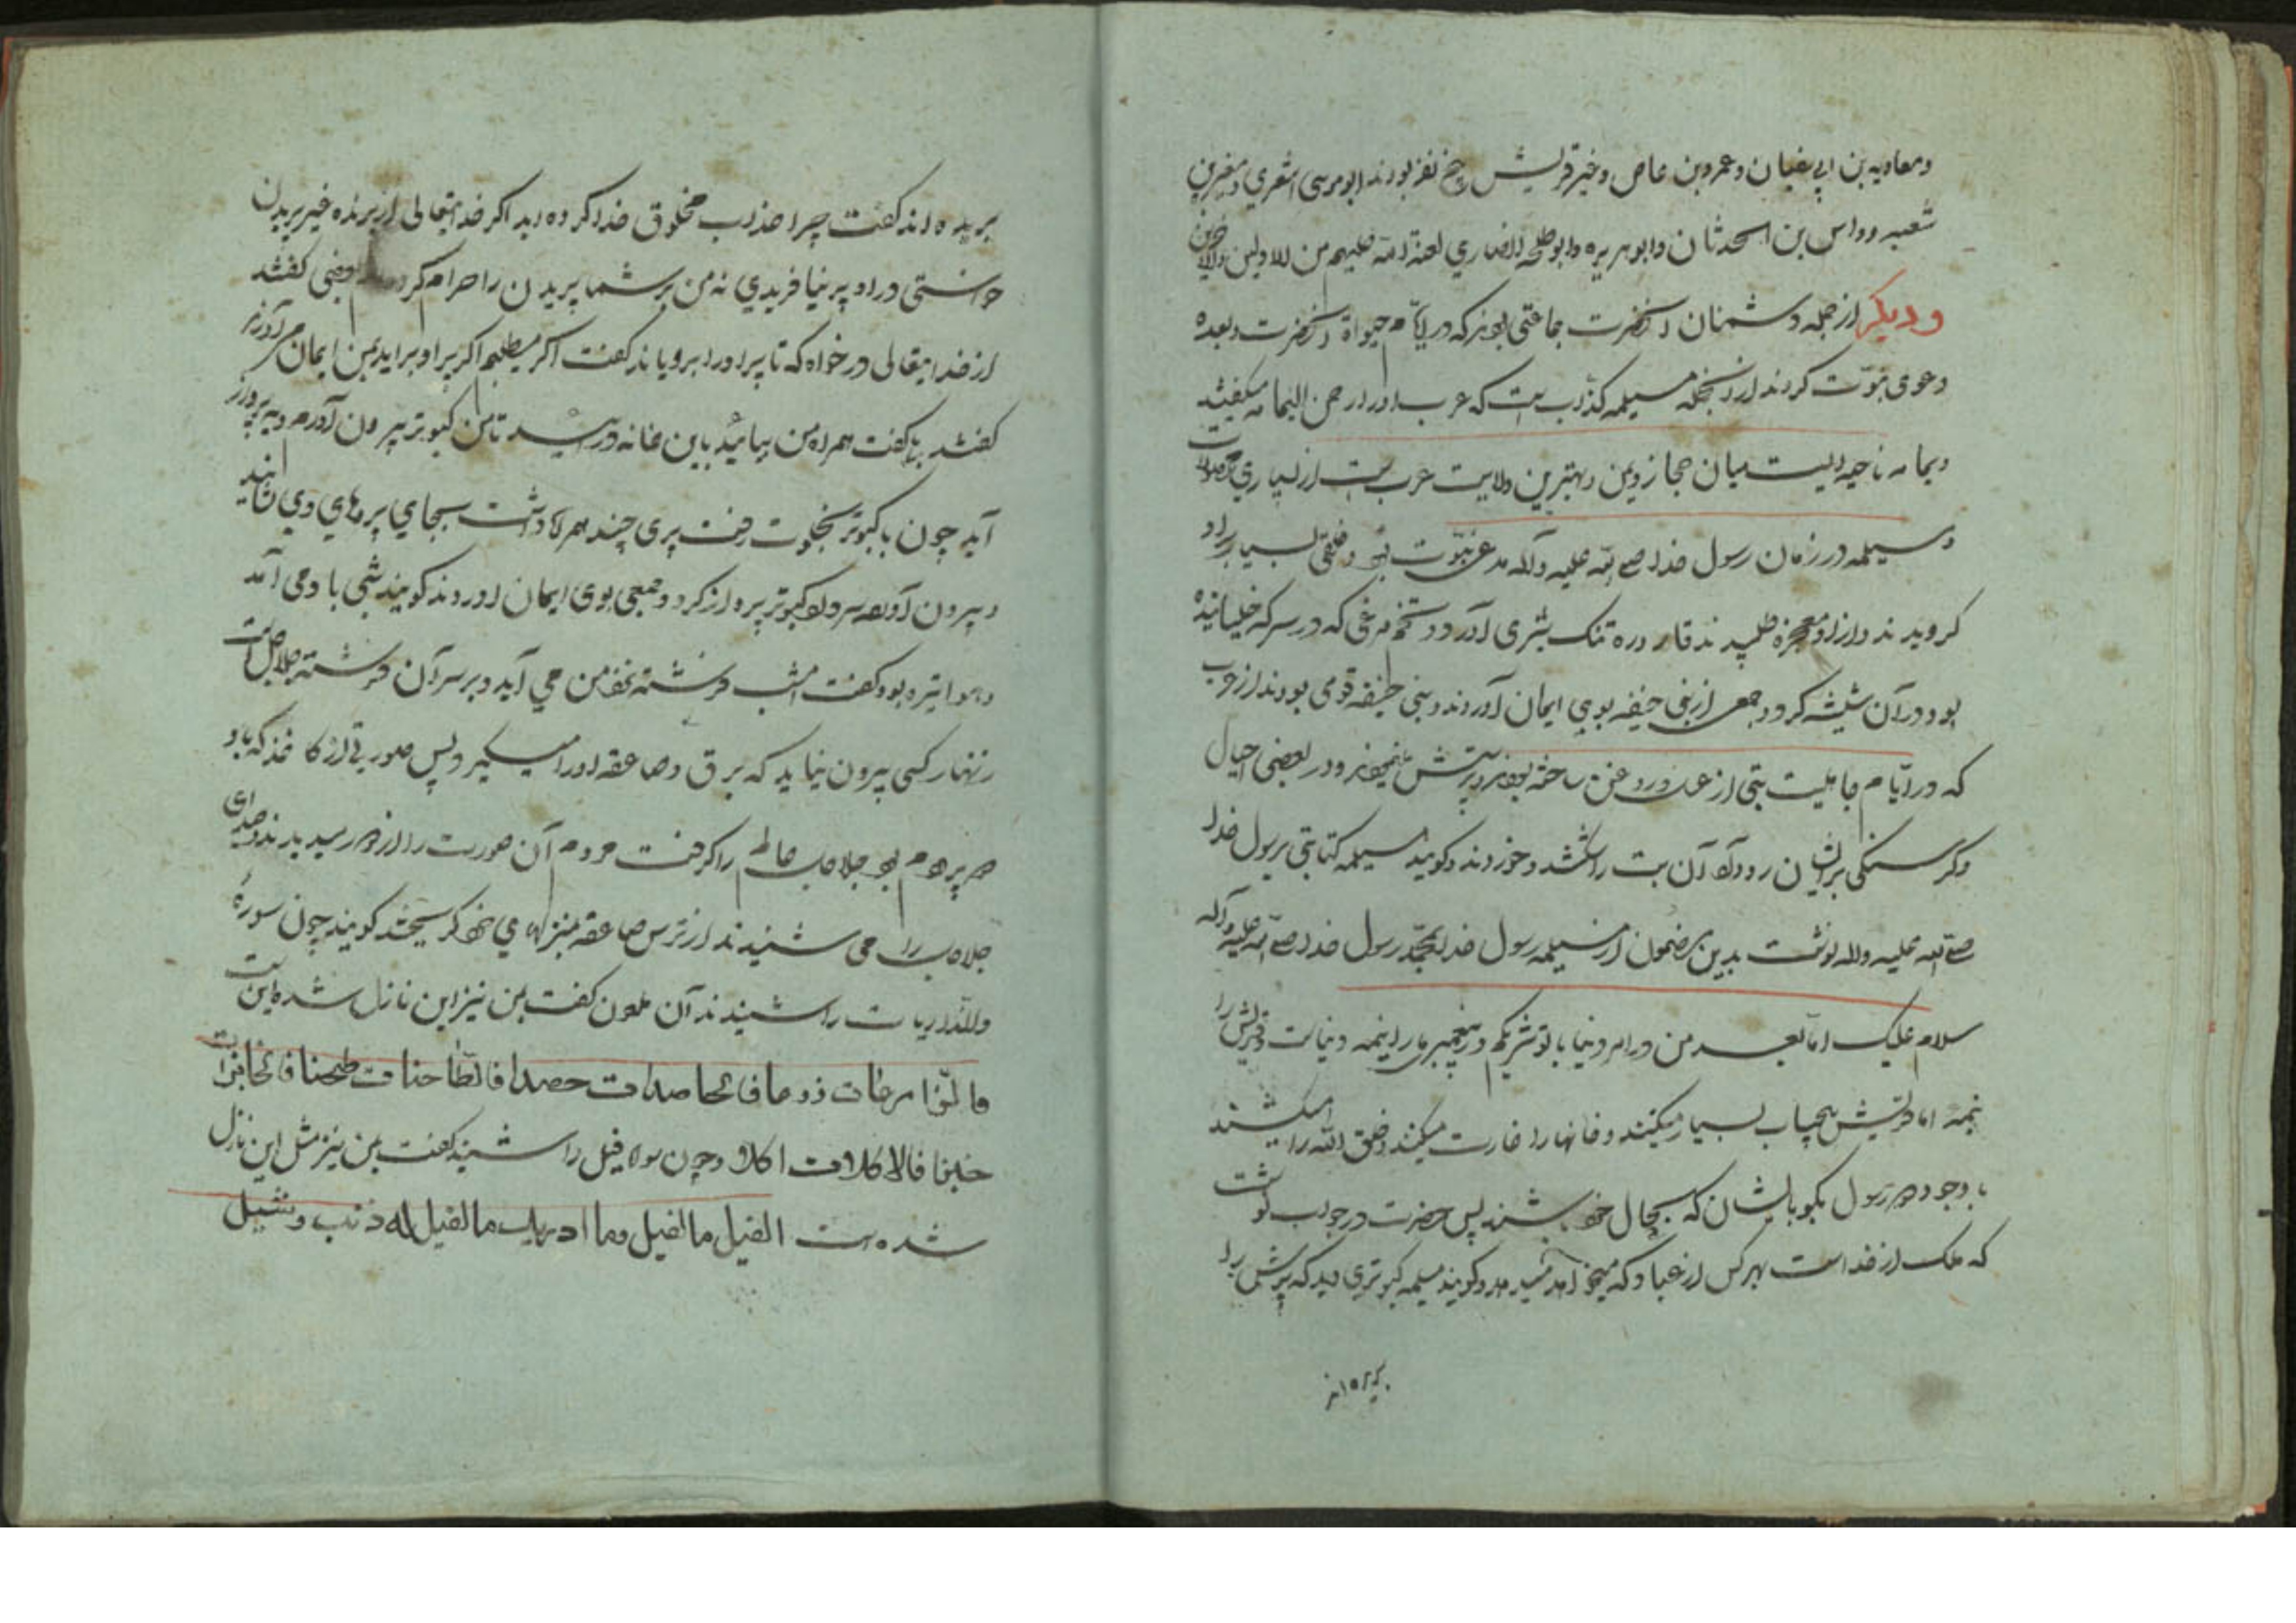 ومعاویه بن ابی سفیان وعمروبن عاص وغیر قریش پنج نفر بودند ابوموسی اشعري ومغیرةبن
شعبه وواس بن الحدثان وابوهریره وابوطلحه انصاري لعنة الله علیهم من الاولین والاخرین
ودیکر از جمله دشمنان انحضرت جماعتی بودند که در ایّام حیواة انحضرت وبعده
دعوی نبوّت کردند از انجمله مسیلمه کذّاب است که عرب اورا رحمن الیمامه میکفتند
ویمامه ناحیه ایست میان حجاز ویمن وبهترین ولایت عرب است از بسیاري
ومسیلمه در زمان رسول خدا صلی الله علیه وآله مدعی نبوّت بود وخلقی بسیار براو
کرویدند وازاو معجزه طلبیدند قاروره تنک سری آورد وتخم مرغی که در سرکه خیسانیده
بود در آن شیشه کرد وجمعی از بنی حنیفه بوي ایمان آوردند وبنی حنیفه قومی بودند از عرب
که در ایّام جاهلیت بتی از عسل وروغن ساخته بودند وپرستش مینمودند ودر بعضی احیال
وکرسنکی برایشان روداد آن بت را شکستند وخوردند وکویند مسیلمه کتابتی برسول خدا
صلی الله علیه واله نوشت بدین مضمون از مسیلمه رسول خدا بمحمّد رسول خدا صلی الله علیه وآله
سلام علیک امّا بعد من در امر دنیا با تو شریکم در پیغمبری مارا نیمه دنیاست وقریش را
نیمه اما قریش بیحساب بسیار میکنند وخانها را غارت میکنند وخلق الله را میکشند
با وجود رسول بکو بایشان که بحال خود باشند پس حضرت در جواب نوشت
که ملک از خداست بهرکس از عباد که میخواهد میدهد وکویند مسیلمه کبوتری دید که پرش را
بریده اند
بریده اند کفت چرا عذاب مخلوق خدا کرده اید اکر خدایتعالی از پرنده غیر پریدن
خواستی در او پر نیافریدي نه من بر شما پریدن را حرام کردم بعضی کفتند
از خدایتعالی درخواه که تا پر اورا برویاند کفت اکر میطلبم اکر پر او برآید بمن ایمان می آورند
کفتند بلی کفت همراه من بیائید باین خانه درآئید تا من کبوتر بیرون آورم وبه پرواز
آید چون با کبوتر بخلوت رفت پری چند همراه داشت بجای پرهاي وي نشانید
وبیرون آورد سرداد کبوتر پرواز کرد وجمعی بوی ایمان اوردند کویند شبی باد می آمد
وهوا تیره بود کفت امشب فرشته نزد من می آید وبر سر آن فرشته جلاجل است
زنهار کسی بیرون نیاید که برق وصاعقه اورا میکیرد وپس صورتی از کاغذ که باد
جلاجل را می شنیدند از ترس صاعقه بمنزلهاي خود کریختند کویند چون سورۀ
والذاریات را شنیدند آن ملعون کفت بمن نیز این نازل شده است
فالزارعات زرعا فالحاصدات حصدا فالطاحنات طحنا فالخابزات
خبزا فالاکلات اکلا وچون سوره فیل را شنید کفت بمن نیز مثل این نازل
شده است الفیل ما الفیل وما ادریک ما الفیل له ذنب وثیل